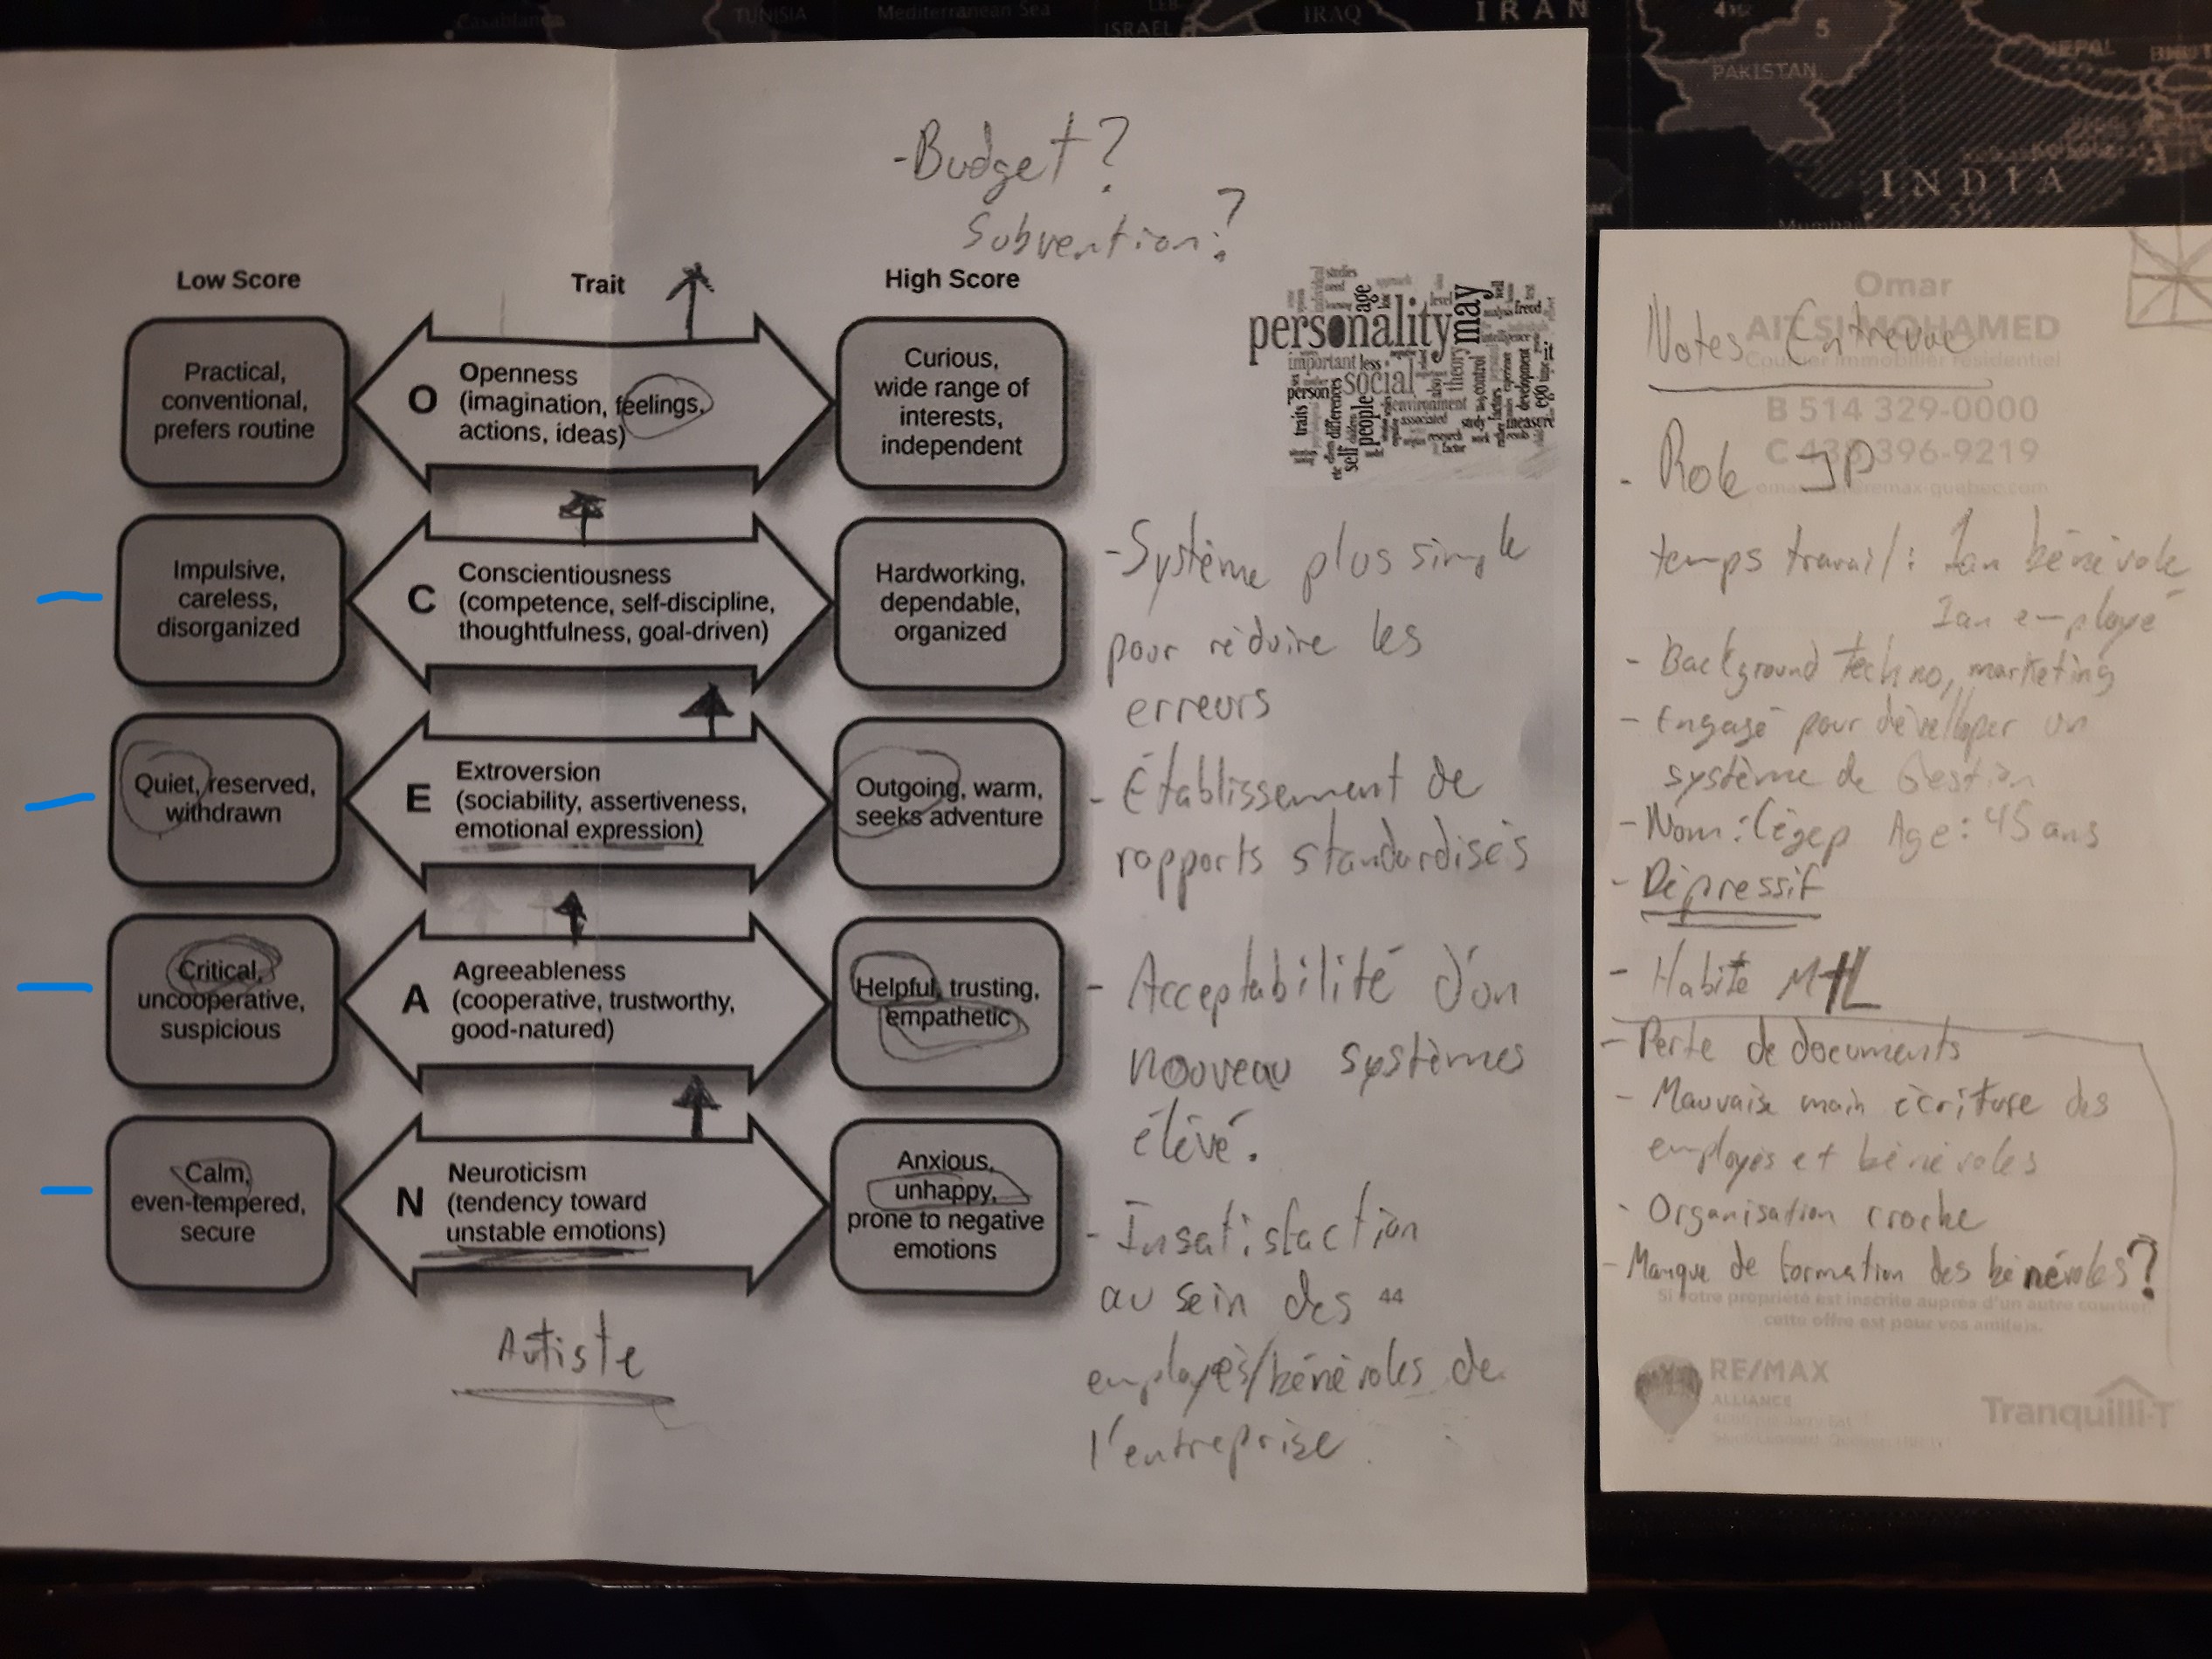 Casablanca
TUNISIA
Mediterranean Sea
LEB
ISRAEL
IRAQ
IRAN
PAKISTAN
4
5
NEPAL
INDIA
Mumbai
- Budget?
Subvention?
Low Score
Trait
High Score
Practical,
conventional,
prefers routine
O
Openness
(imagination, feelings,
actions, ideas)
Curious,
wide range of
interests,
independent
Impulsive,
careless,
disorganized
C
Conscientiousness
(competence, self-discipline,
thoughtfulness, goal-driven)
Hardworking,
dependable,
organized
Quiet, reserved,
withdrawn
E
Extroversion
(sociability, assertiveness,
emotional expression)
Outgoing, warm,
seeks adventure
Critical,
uncooperative,
suspicious
A
Agreeableness
(cooperative, trustworthy,
good-natured)
Helpful, trusting,
empathetic
Calm,
even-tempered,
secure
N
Neuroticism
(tendency toward
unstable emotions)
Anxious,
unhappy,
prone to negative
emotions
Autiste
studies
age
personality
may
level
freud
important less
social
theory
control
it
person
traits
differences
people
environment
associated
development
ego
time
measure
self
study
factor
- Système plus simple
pour réduire les
erreurs
- Établissement de
rapports standardisés
- Acceptabilité d'un
nouveau systèmes
élévé.
- Insatisfaction
au sein des
44
employés/bénévoles de
l'entreprise
Omar
AIT SI MOHAMED
Courtier immobilier résidentiel
B 514 329-0000
396-9219
remax-quebec.com
Notes Entrevue
- Role JP
temps travail: 1an bénévole
1an employé
- Background techno, marketing
- Engagé pour dévelloper un
système de Gestion
- Nom: Cégep Age: 45 ans
- Dépressif
- Habite MTL
- Perte de documents
- Mauvaise main écriture des
employés et bénévoles
- Organisation croche
- Manque de formation des bénévoles?
Si votre propriété est inscrite auprès d'un autre courtier,
cette offre est pour vos ami(e)s.
RE/MAX
ALLIANCE
Tranquilli-T